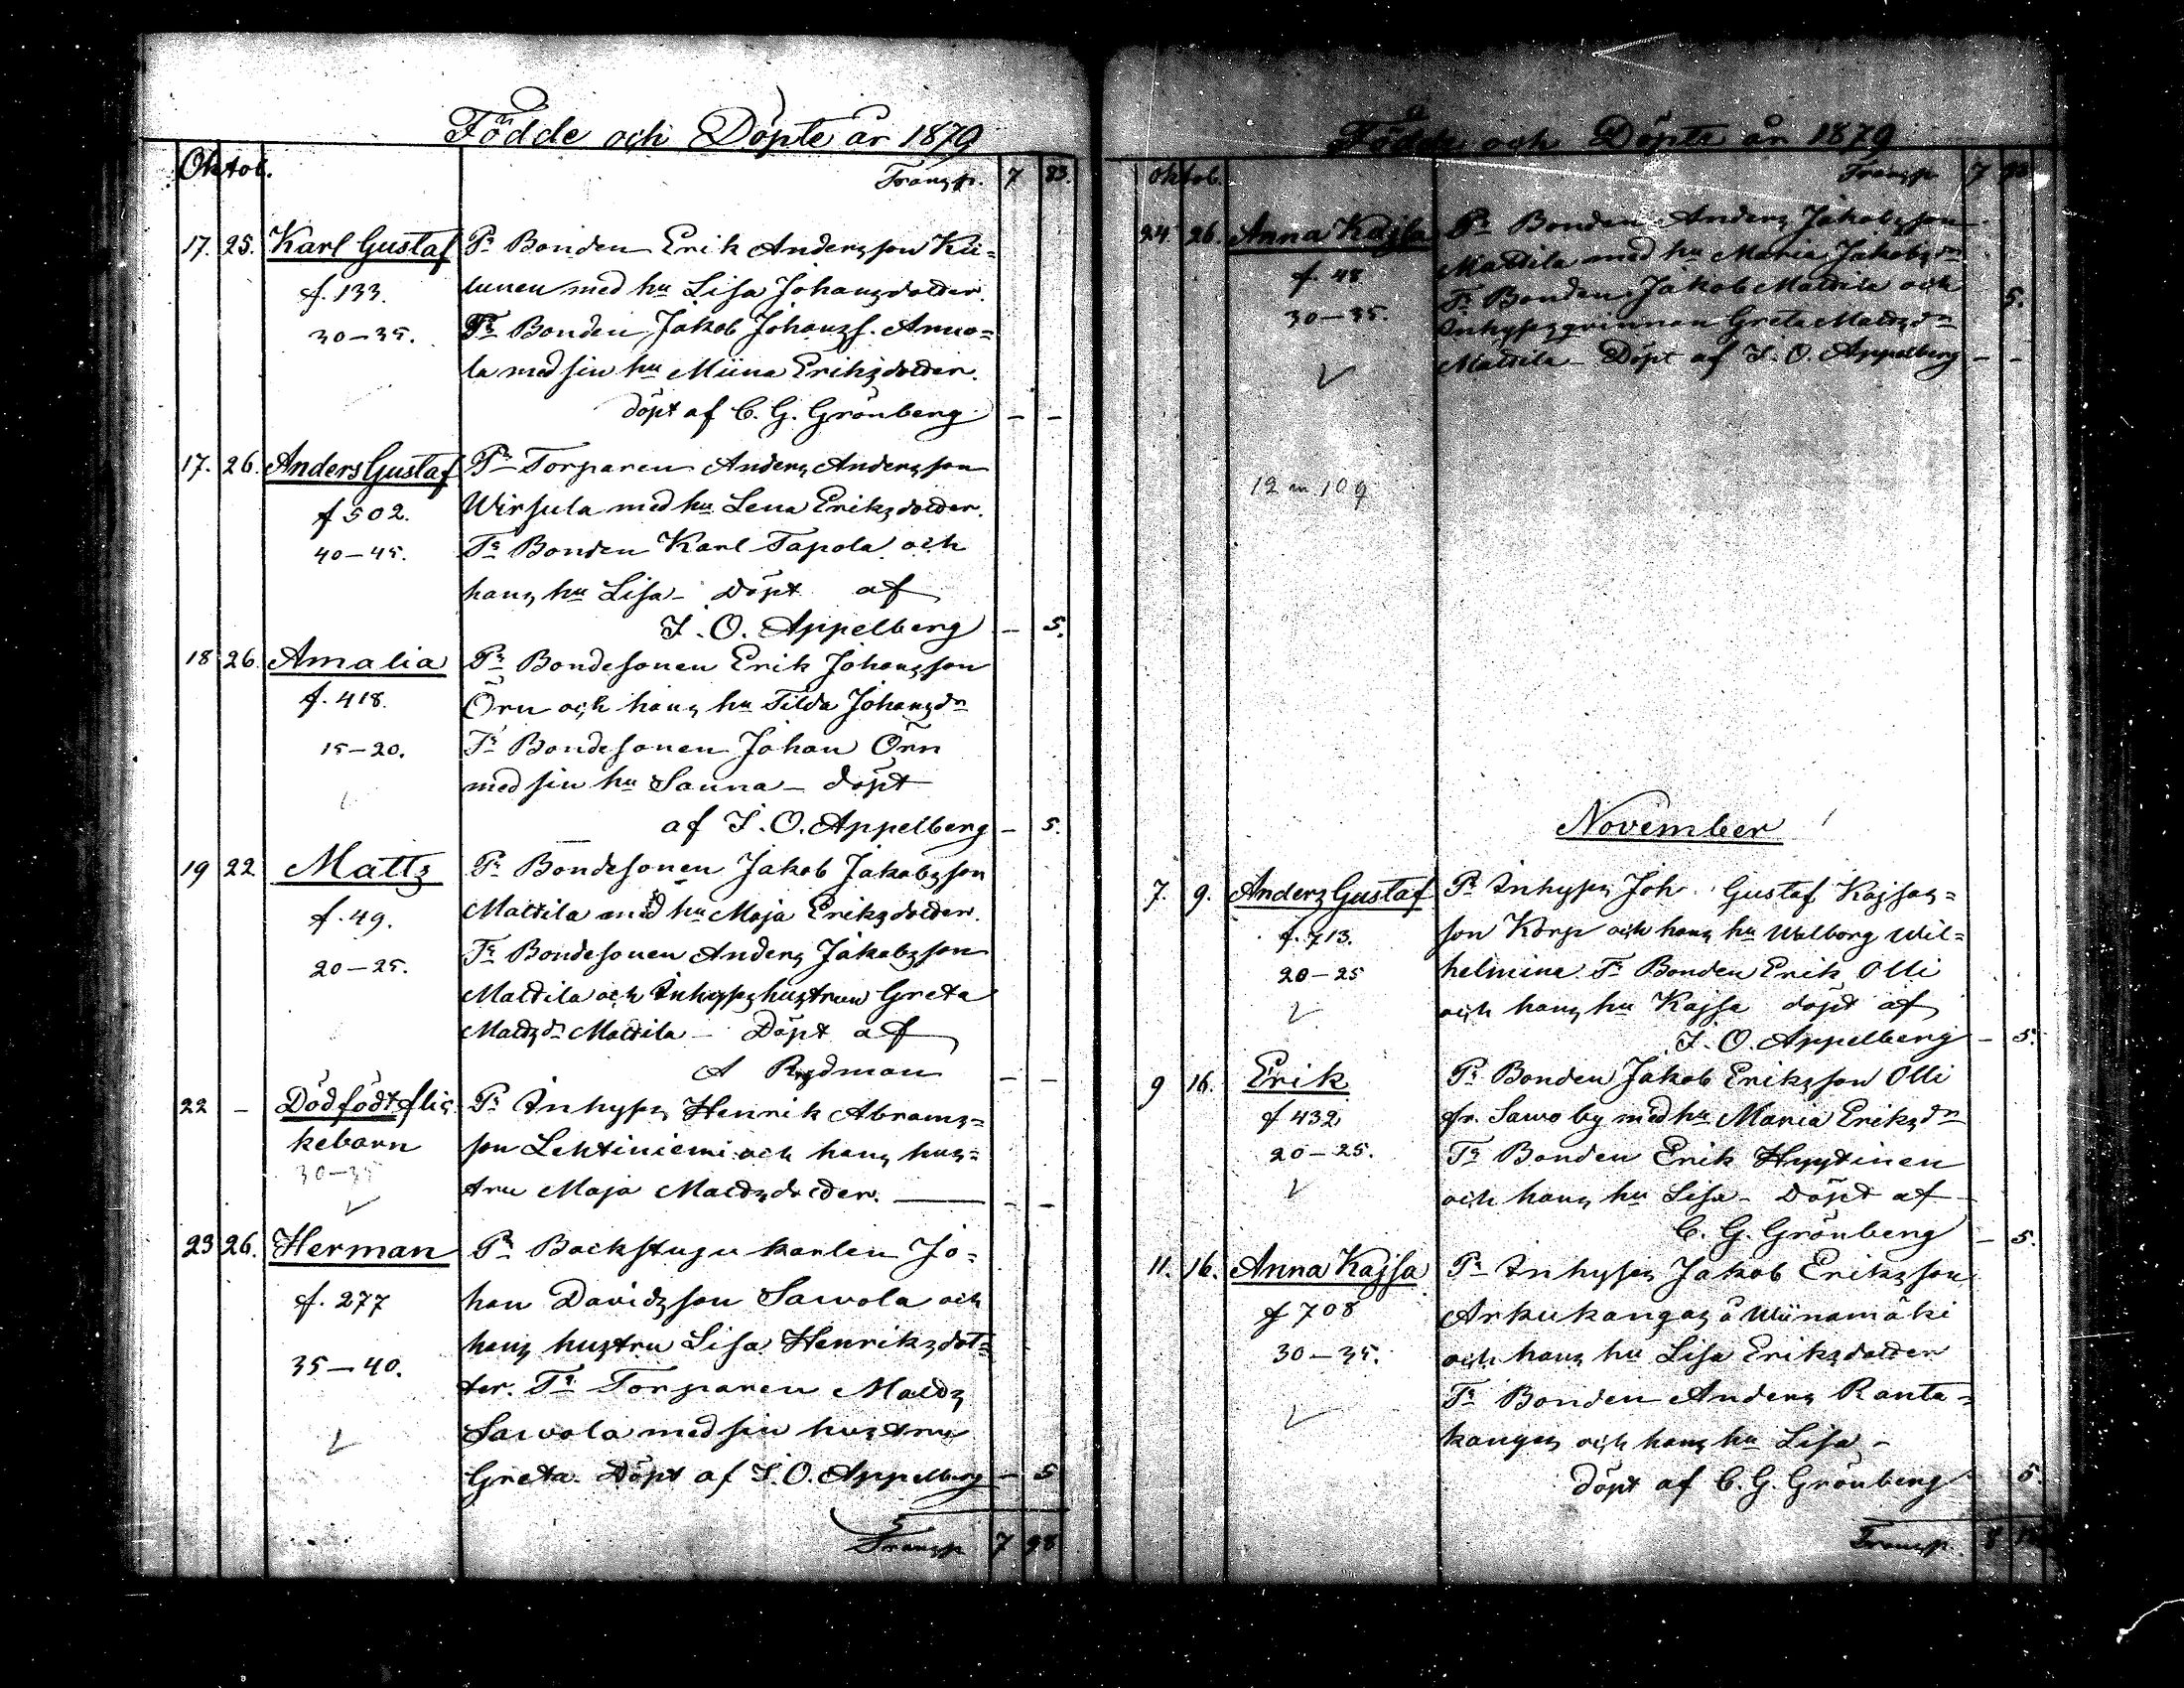 Födde och Döpte år 1879
Oktob.
Transp. 7 93.
17. 25. Karl Gustaf Pr Bonden Erik Andersson Kii=
f. 133. lunen med hu Lisa Johansdotter.
30–35. Fr Bonden Jakob Johanss. Anno=
la med sin hu Miina Eriksdotter.
döpt af C. G. Grönberg – –
17. 26. Anders Gustaf Pr Torparen Anders Andersson
f 502. Wirsula med hu Lena Eriksdotter.
40–45. Fr Bonden Karl Tapola och
hans hu Lisa – Döpt af
I. O. Appelberg – 5.
18 26. Amalia Pr Bondesonen Erik Johansson
f. 418. Örn och hans hu Tilda Johansdr
15–20. Fr Bondesonen Johan Örn
med sin hu Sanna – döpt
af I. O. Appelberg – 5.
19 22 Matts Pr Bondesonen Jakob Jakobsson
f. 49. Mattila med hu Maja Eriksdotter.
20–25. Fr Bondesonen Anders Jakobsson
Mattila och Inhyseshustrun Greta
Mattsdr Mattila – Döpt af
A Rydman – –
22 – Dödfödt flic= Pr Inhyses Henrik Abrams=
kebarn son Lehtiniemi och hans hus=
30–35 tru Maja Mattsdotter. – –
23 26. Herman Pr Backstugukarlen Jo=
f. 277 han Davidsson Sawola och
35–40. hans hustru Lisa Henriksdot=
ter. Fr Torparen Matts
Sawola med sin hustru
Greta. Döpt af I. O. Appelberg – 5
Transp. 7 98
Födde och Döpte år 1879
Oktob.
Transp. 7 98
24. 26. Anna Kajsa Pr Bonden Anders Jakobsson
f. 48 Mattila med hu Maria Jakobsdr
30–35. Fr Bonden Jakob Mattila och 5.
Inhysesqvinnan Greta Mattsdr
Mattila – Döpt af I. O. Appelberg – –
12 m 10 q
November
7. 9. Anders Gustaf Pr Inhyses Joh. Gustaf Kajsas=
f. 713. son Korp och hans hu Walborg Wil=
20–25 helmina Fr Bonden Erik Olli
och hans hu Kajsa döpt af
I. O. Appelberg – 5.
9 16. Erik Pr Bonden Jakob Eriksson Olli
f 432 fr. Sawo by med hu Maria Eriksdr
20–25. Fr Bonden Erik Hyytinen
och hans hu Lisa – Döpt af
C. G. Grönberg – 5.
11. 16. Anna Kajsa Pr Inhyses Jakob Eriksson
f 708 Arkukangas å Wiinamäki
30–35. och hans hu Lisa Eriksdotter
Fr Bonden Anders Ranta=
kangas och hans hu Lisa –
döpt af C. G. Grönberg 5.
Transp. 8